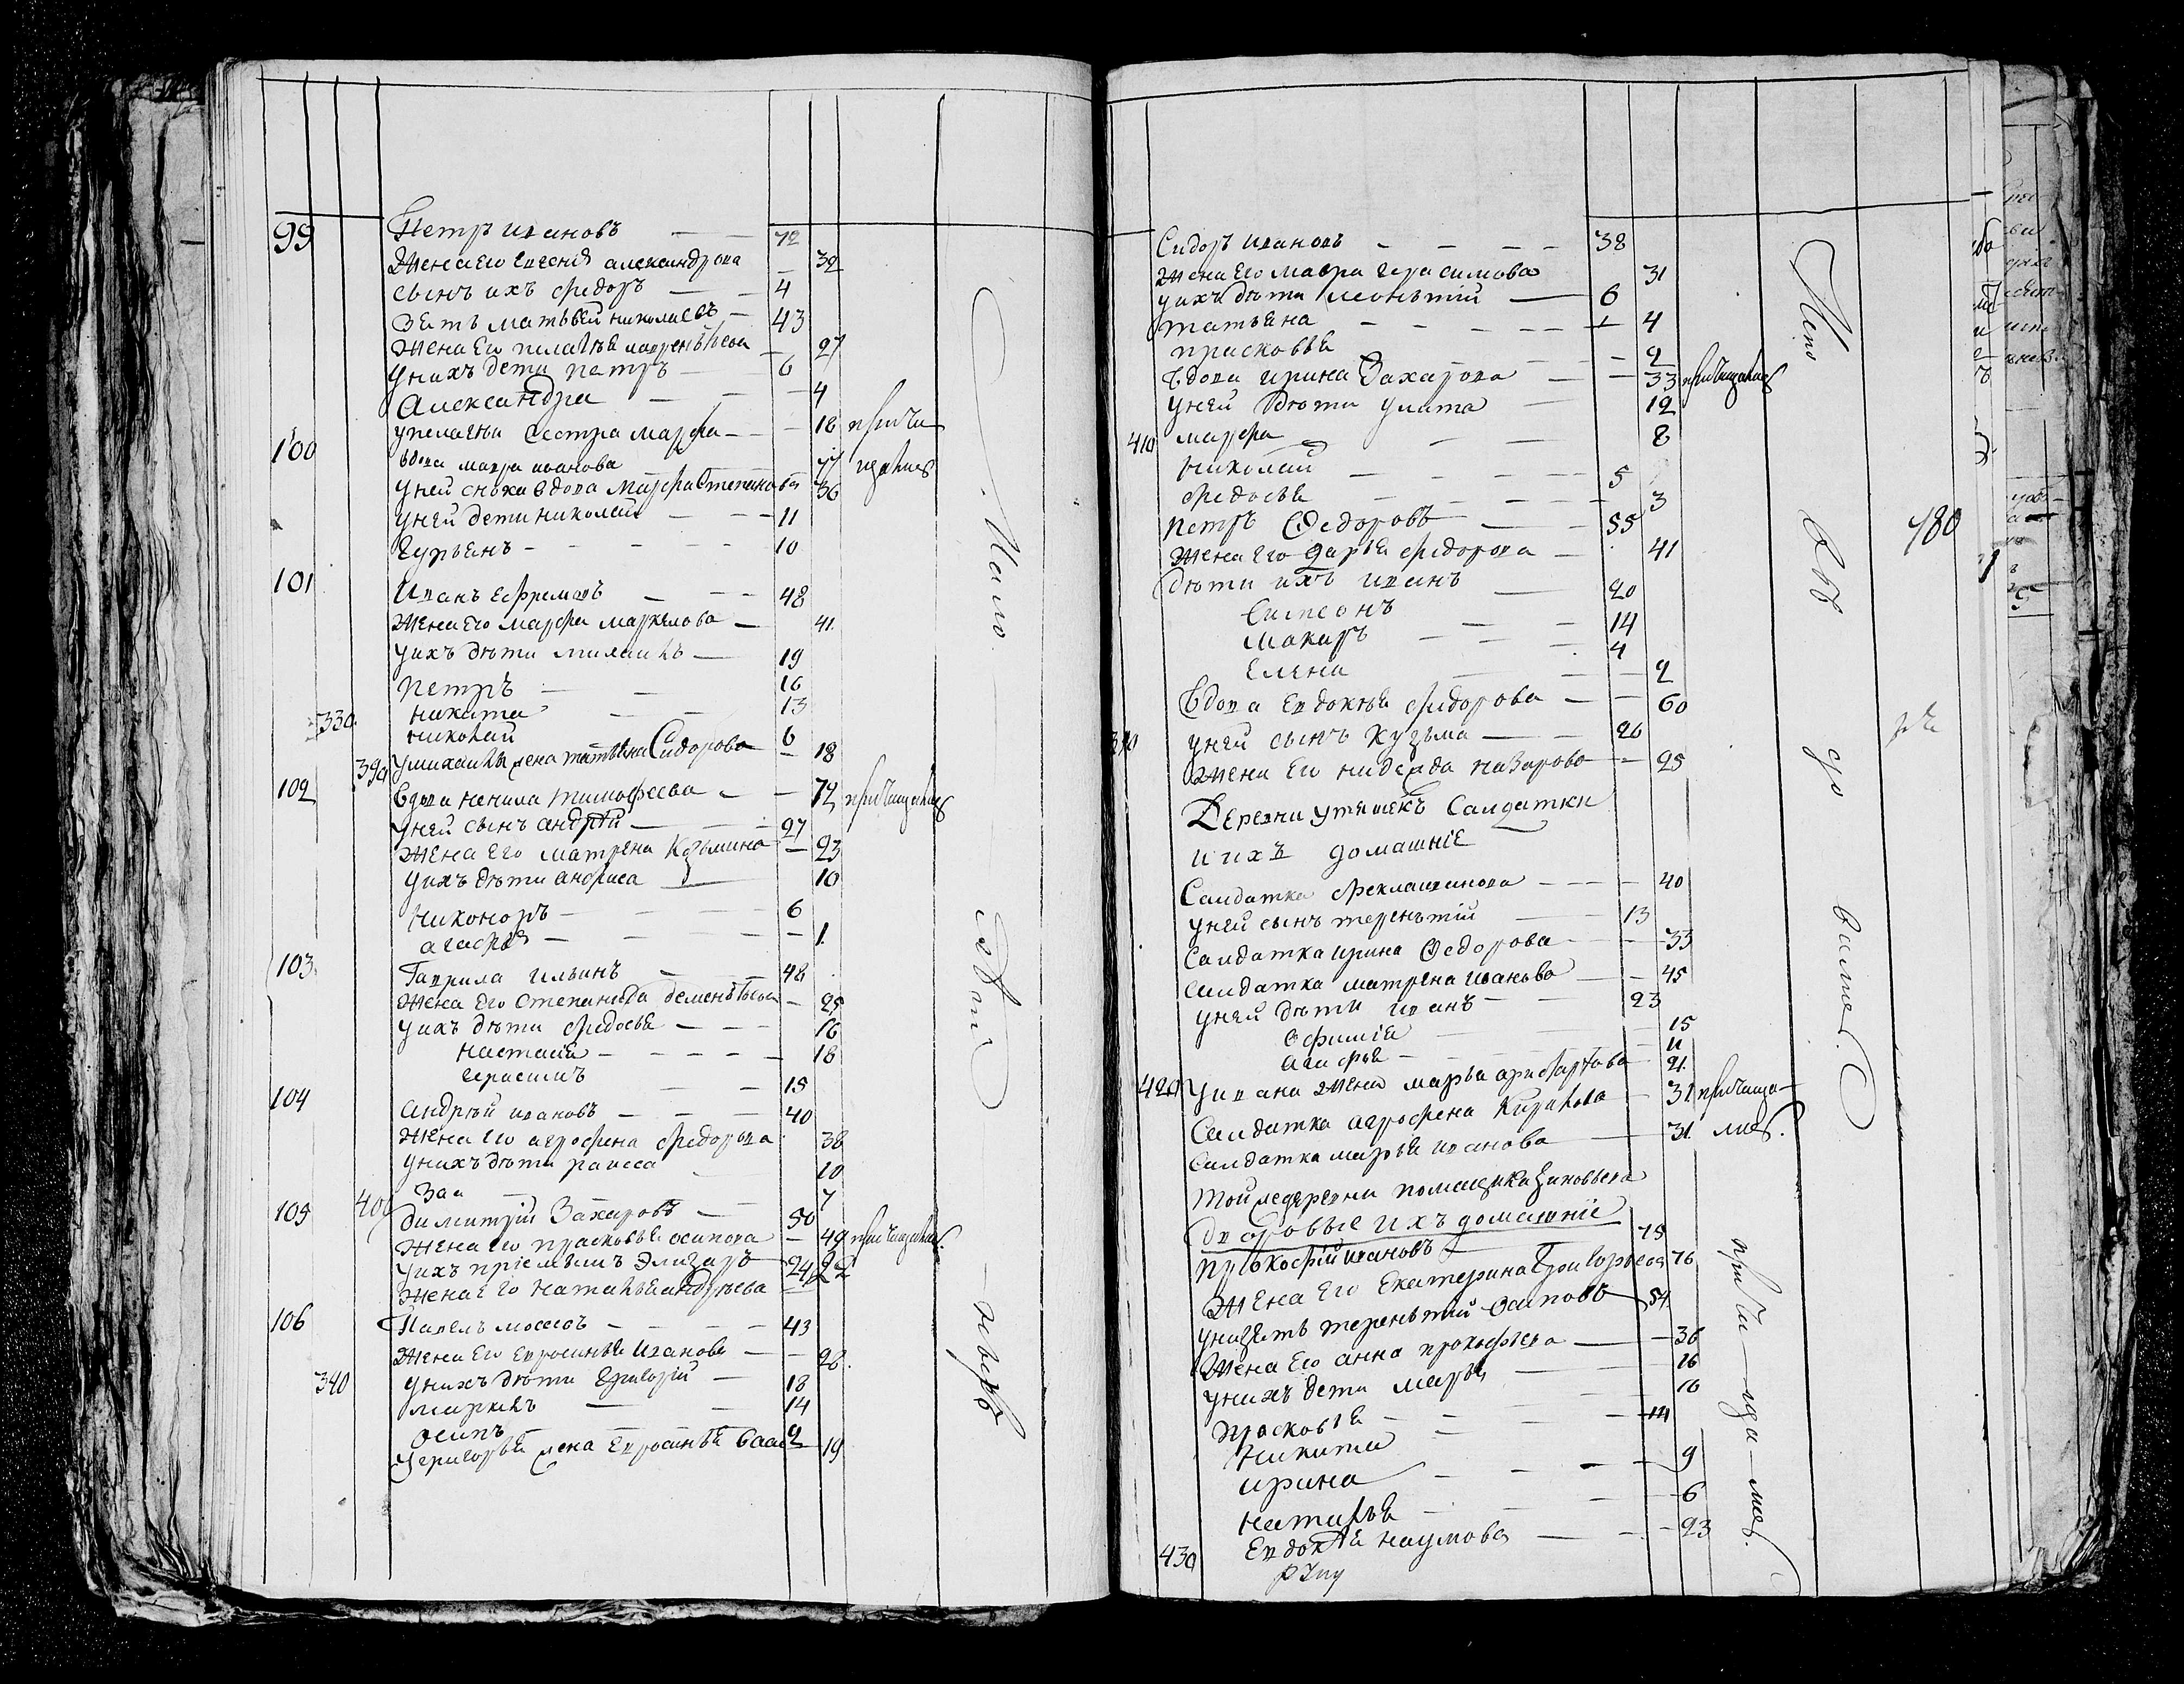 99 Петръ ивановъ 72
Жена его евгения александрова 32
сынъ ихъ федоръ 4
зять матьвей николаевъ 43
Жена его пелагея лаврентьева 27
у нихъ дети петръ 6
Александра 4
у пелагеи сестра марфа 18 прича
100 вдова мавра иванова 77 щались
у ней сноха вдова Марфа Степанова 36
у ней дети николай 11
гурьянъ 10
101 Иванъ ефремовъ 48
Жена его марфа маркелова 41
у ихъ дѣти михаилъ 19
петръ 16
330 никита 13
николай 6
390 у михаилы жена татьяна Сидорова 18
102 Вдова ненила тимофеева 72 причащались
у ней сынъ андрѣй 27
Жена его матрена Козьмина 23
у ихъ дѣти анфиса 10
никоноръ 6
агафья 1
103 Гаврила ильинъ 48
Жена его степанида деменьтьева 25
у ихъ дѣти федосья 16
настасия 18
герасимъ 15
104 андрѣй ивановъ 40
жена его агрофена федорова 38
у нихъ дѣти раисса 10
зая 7
105 400 димитрий Захаровъ 50
Жена его прасковья осипова 49 причащались
у ихъ приемышъ Элизаръ 24
Жена его наталья андрѣева 22
106 Павелъ мосеовъ 43
Жена его евросинья Иванова 28
340 у нихъ дѣти григорий 18
маркелъ 14
осипъ 2
у григорья жена евросинья 19
Мало лѣт ны хъ
Сидоръ ивановъ 38
Жена его мавра герасимова 31
у ихъ дѣти леоньтий 6
татьяна 4
прасковья 2
Вдова ирина Захарова 33 причащались
у ней дѣти улита 12
410 марфа 8
николай 5
федосья 3
петръ Федоровъ 55
Жена его дарья федорова 41
дѣти ихъ иванъ 20
симеонъ 14
макаръ 4
елена 2
Вдова евдокѣя федорова 60
у ней сынъ кузьма 26
Жена его 25
Деревни утяшекъ Салдатки
и ихъ домашние
Салдатка фекла иванова 40
у ней сынъ тереньтий 13
Салдатка ирина Федорова 33
салдатка матрена иванова 45
у ней дѣти иванъ 23
офимия 15
агафья 11
420 у ивана жена марья 21
Салдатка агрофена Кирилова 31 причаща
Салдатка марья иванова 31 лись.
Той же деревни помещика Зиновьева
дворовые ихъ домашние
Прокофий ивановъ 75
Жена его екатерина Григорьева 76
у низ зять тереньтий осиповъ 54
Жена его анна прокофьева 36
у нихъ дети марья 16
прасковья 16
никита 14
ирина 9
наталья 6
430 Евдокѣя наумова 23
при ча ща лись
780